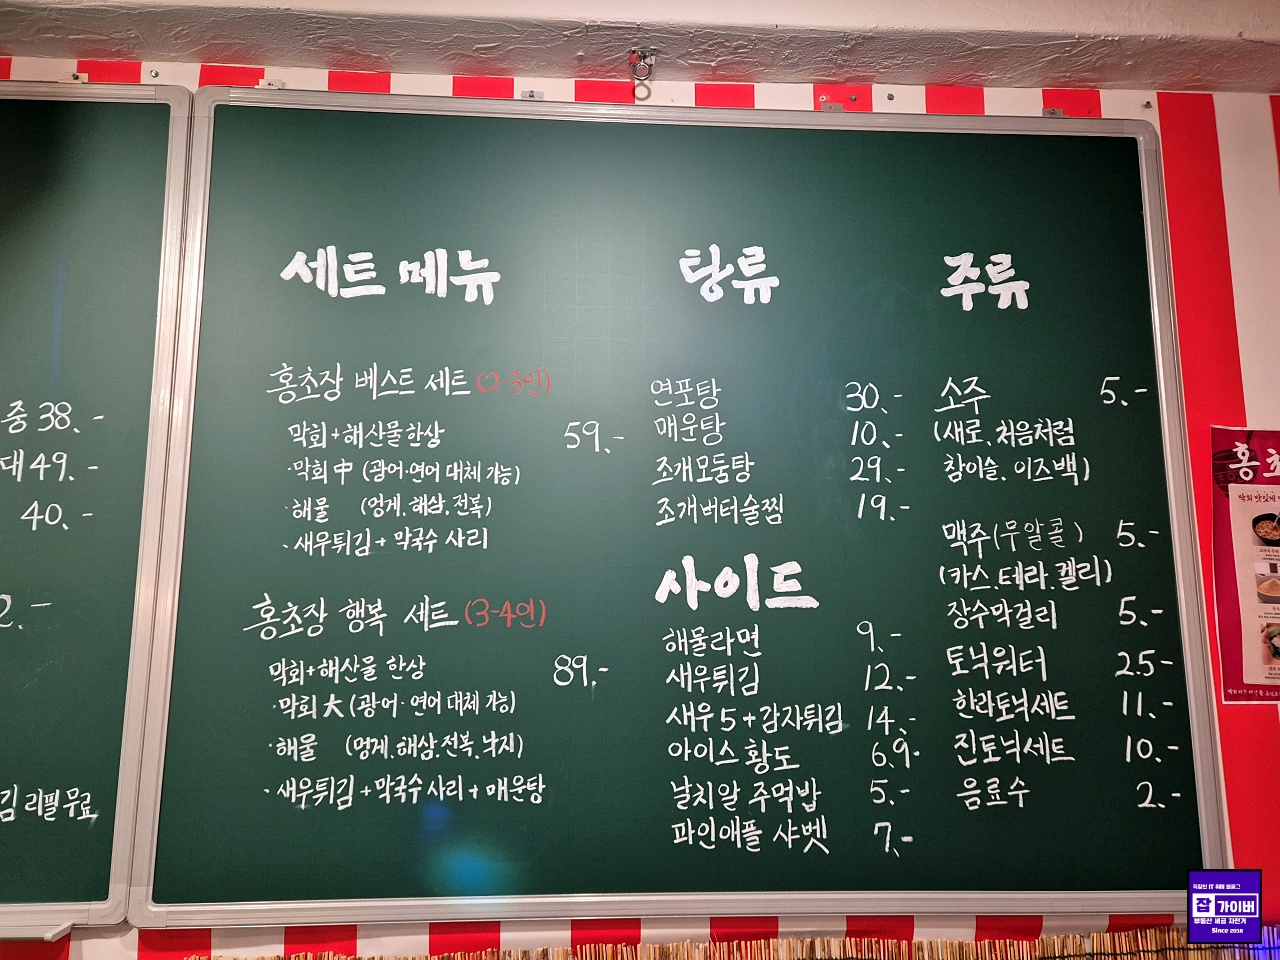 중 38.-
대 49.-
40.-
2.-
김 리필 무료
세트 메뉴
홍초장 베스트 세트 (2-3인)
막회+해산물 한상 59.-
·막회 中 (광어·연어 대체 가능)
·해물 (멍게.해삼.전복)
·새우튀김+막국수 사리
홍초장 행복 세트 (3-4인)
막회+해산물 한상 89.-
·막회 大 (광어·연어 대체 가능)
·해물 (멍게.해삼.전복.낙지)
·새우튀김+막국수 사리+매운탕
탕류
연포탕 30.-
매운탕 10.-
조개모둠탕 29.-
조개버터술찜 19.-
사이드
해물라면 9.-
새우튀김 12.-
새우5+감자튀김 14.-
아이스 황도 6.9-
날치알 주먹밥 5.-
파인애플 샤벳 7.-
주류
소주 5.-
(새로.처음처럼
참이슬.이즈백)
맥주(무알콜) 5.-
(카스.테라.켈리)
장수막걸리 5.-
토닉워터 2.5-
한라토닉세트 11.-
진토닉세트 10.-
음료수 2.-
홍초
직장인 IT 취미 블로그
잡가이버
부동산 세금 자전거
Since 2018